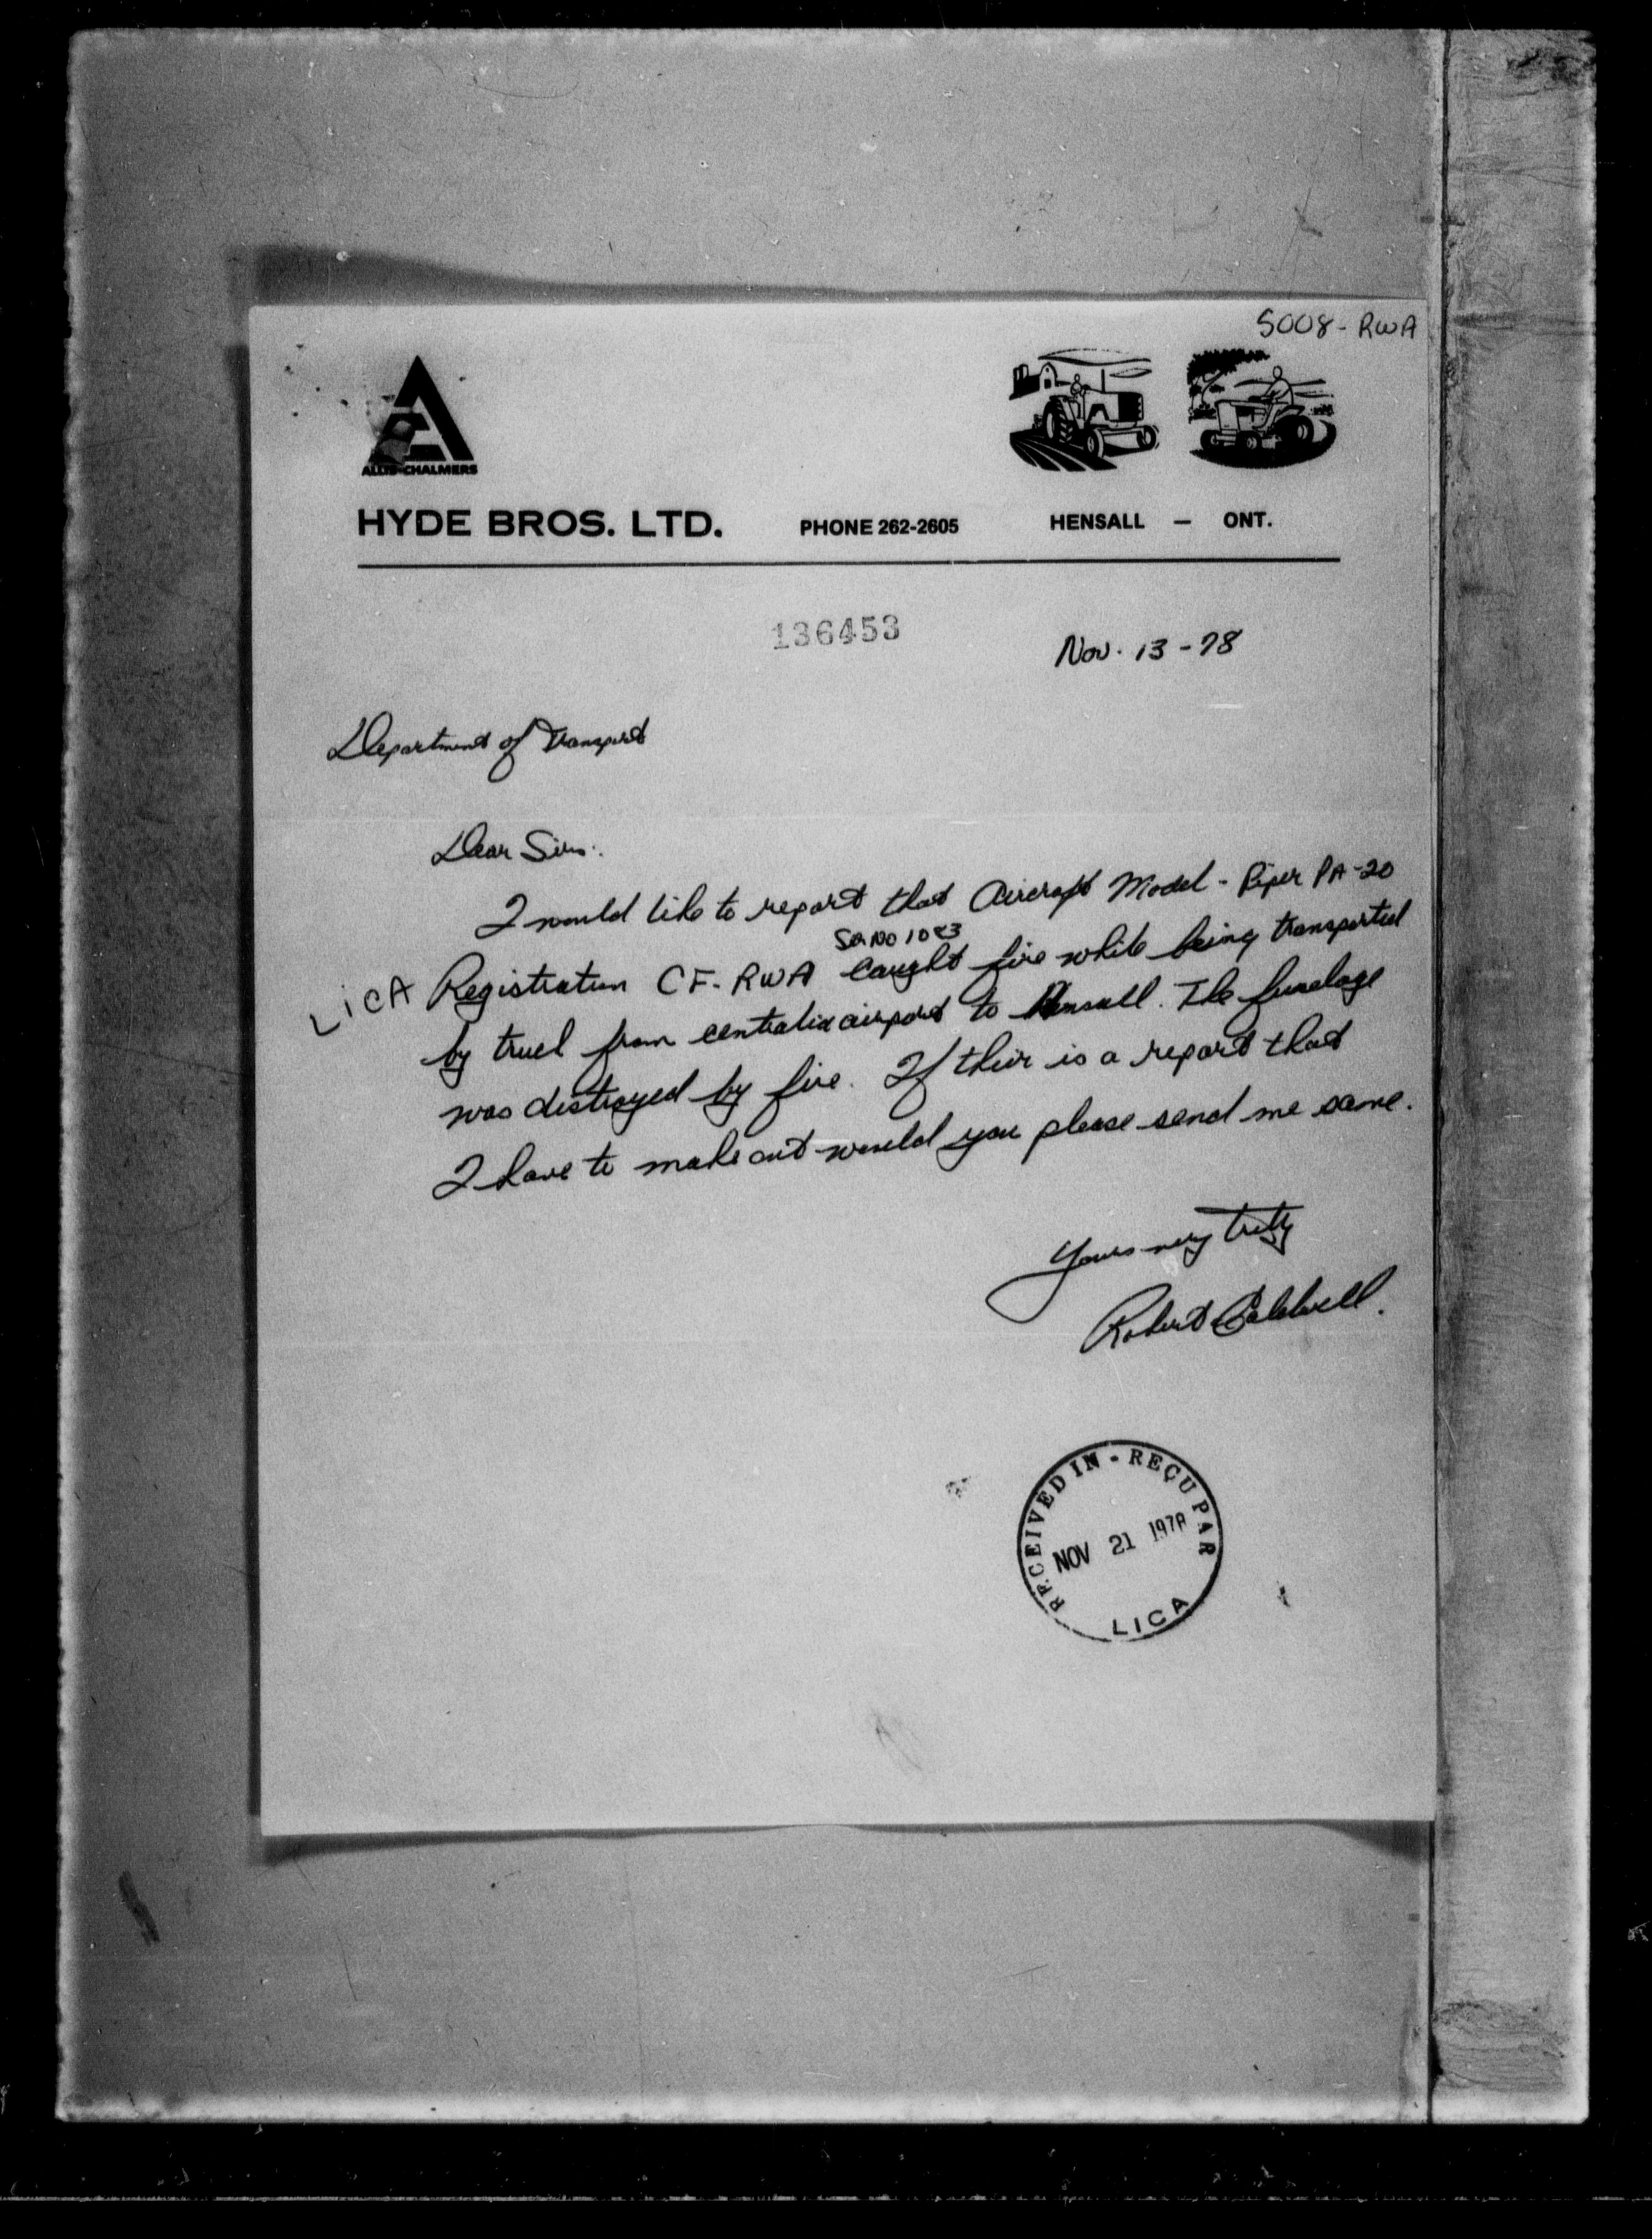 5008-RWA
ALLIS-CHALMERS
HYDE BROS. LTD. PHONE 262-2605 HENSALL — ONT.
136453
Nov. 13-78
Department of Transport
Dear Sirs:
I would like to report that Aircraft Model - Piper PA-20
Ser No
LiCA Registration CF-RWA caught fire while being transported
by truck from centralia airport to Hensall. The fuselage
was distroyed by fire. If their is a report that
I have to make out would you please send me same.
Yours very truly
Robert Caldwell.
RECEIVED IN - REÇU PAR
NOV 21 1978
LICA